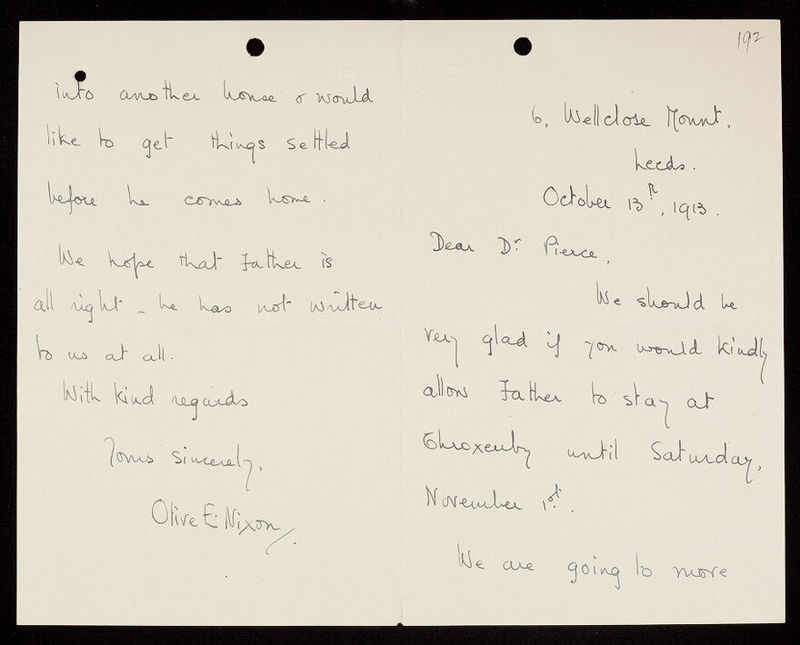 192
6, Wellclose Mount,
Leeds.
October 13th, 1913.
Dear Dr Pierce,
We should be
very glad if you would kindly
allow Father to stay at
Throxenby until Saturday,
November 1st.
We are going to move
into another house & would
like to get things settled
before he comes home.
We hope that Father is
all right - he has not written
to us at all.
With kind regards
Yours sincerely,
Olive E. Nixon